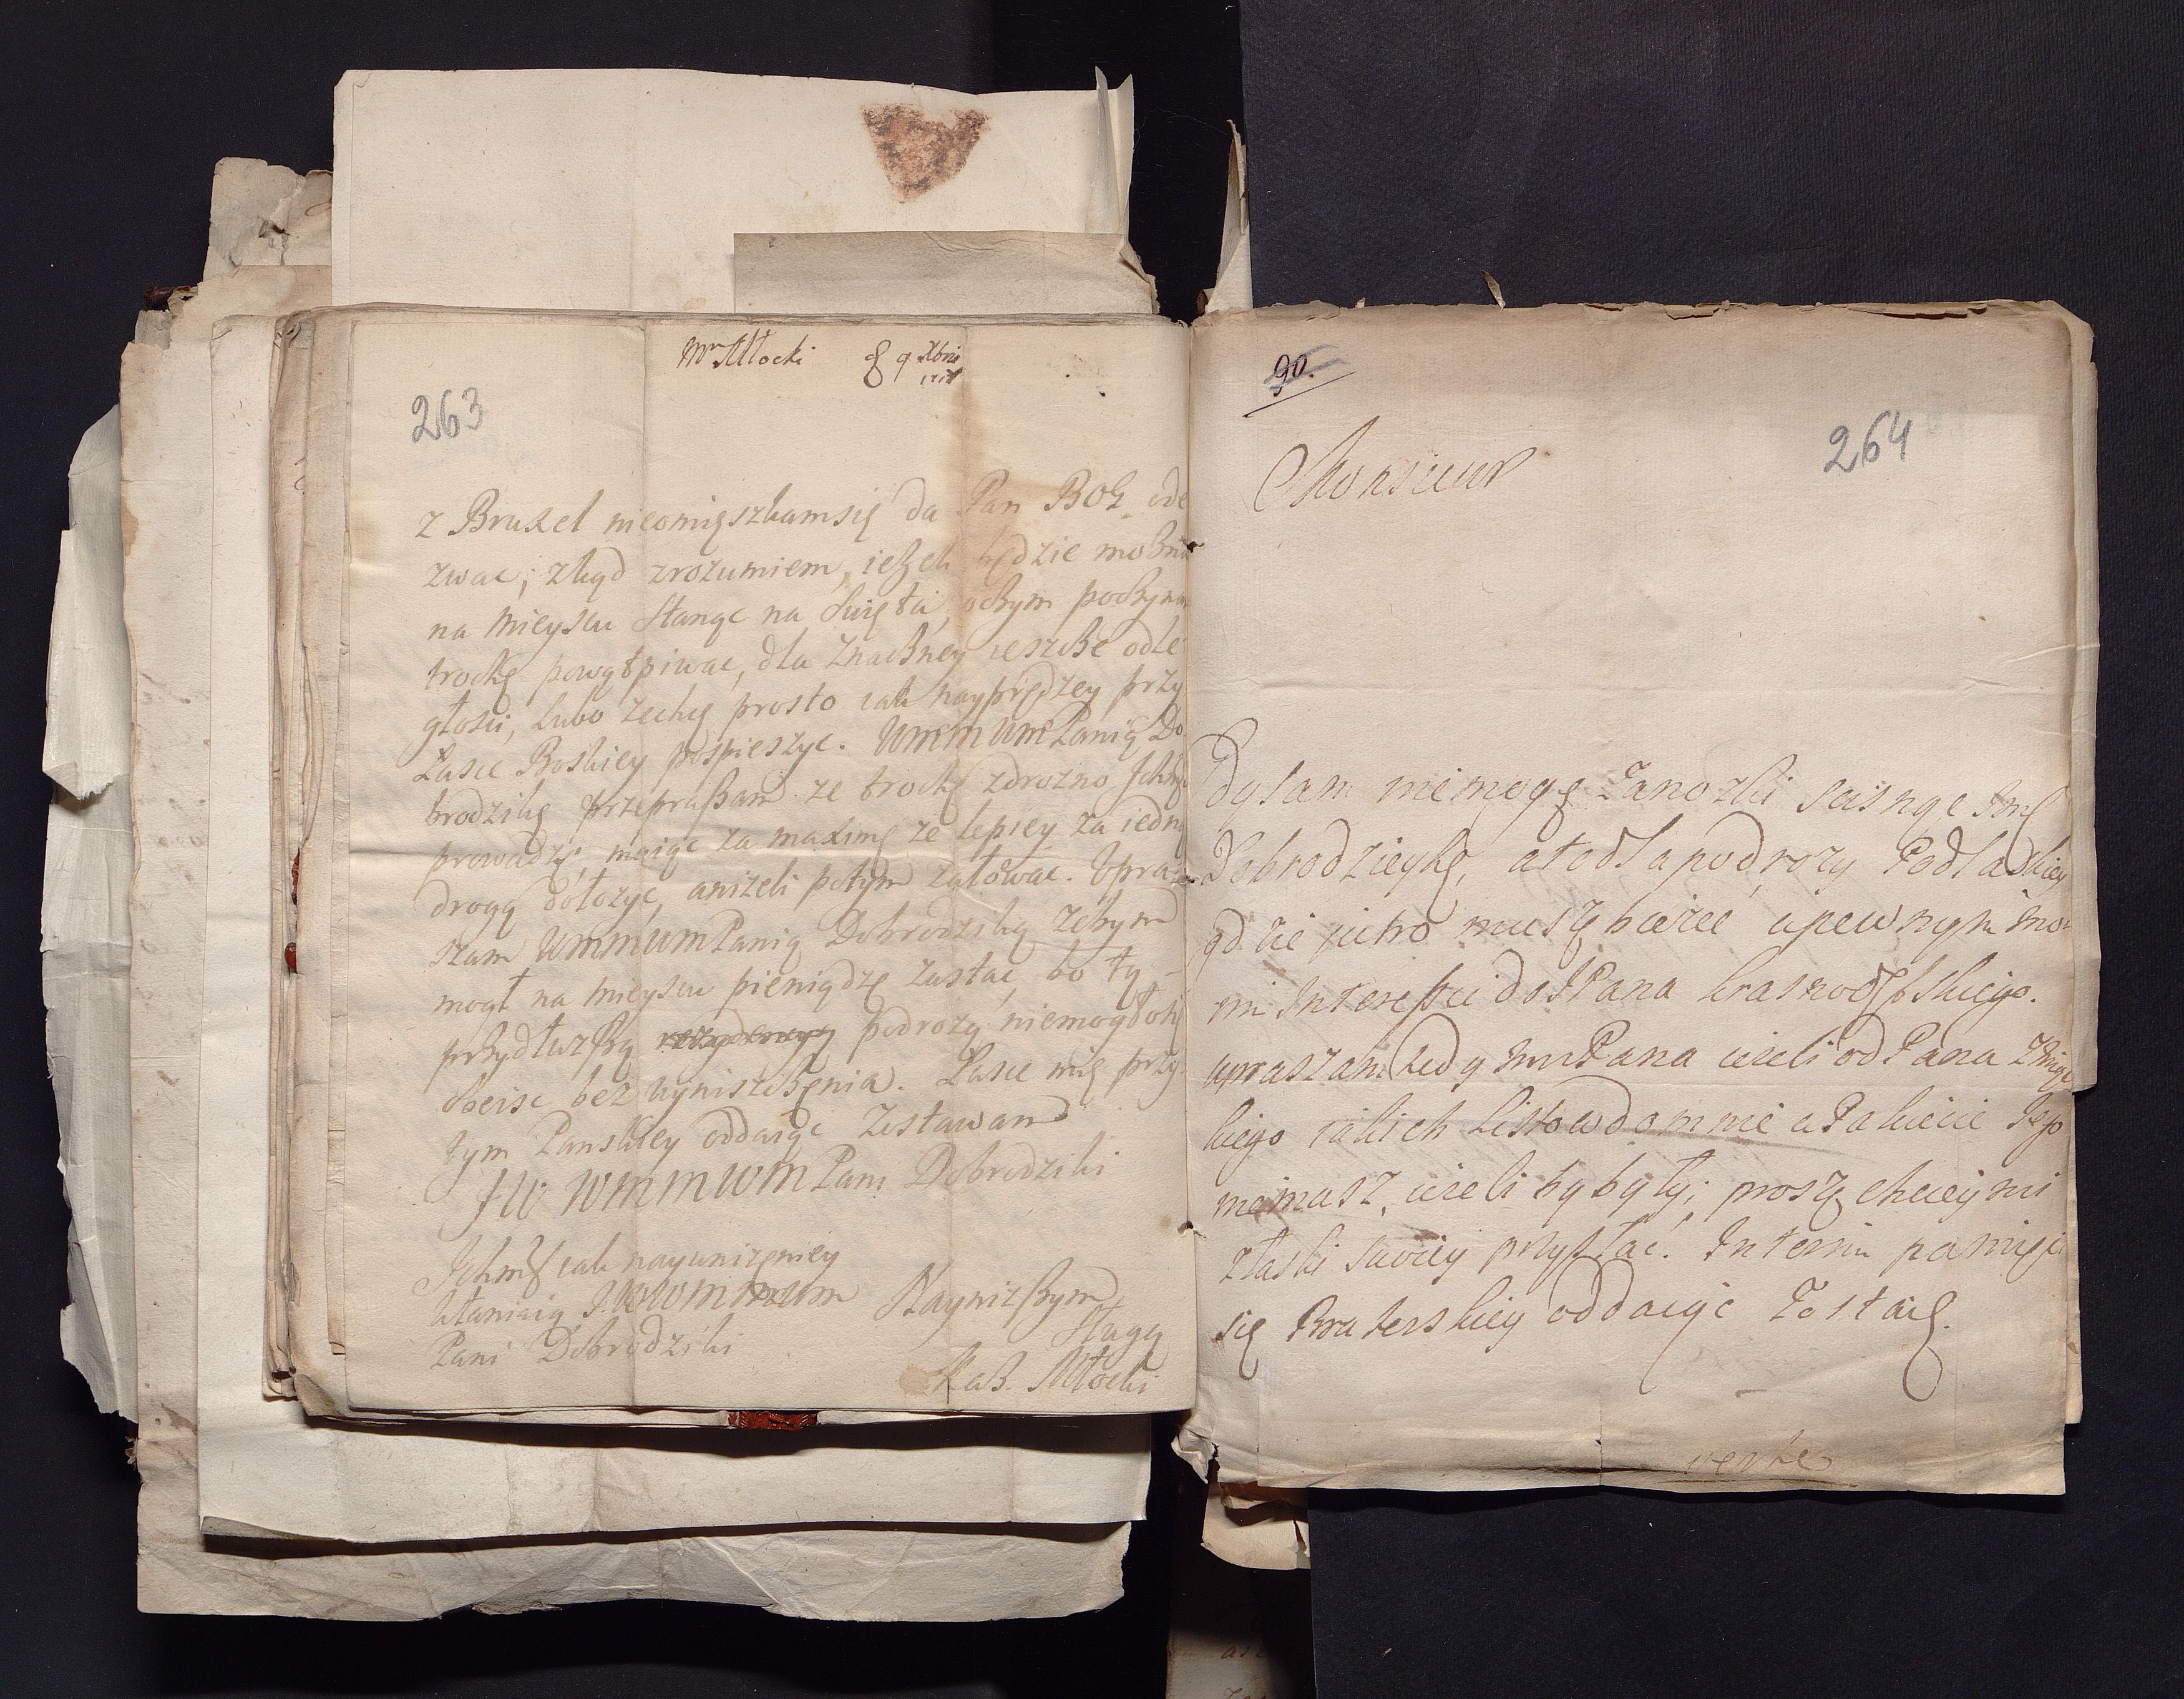 Mr Młocki 9 Xbris
263
z Bruxel nieomięszkamsię da Pan BOG ode
zwac; zkąd zrozumiem, ieżeli będzie można
na mieyscu stanąc na Swięta, oczym poczynam
trochę powątpiwac, dla znaczney ieszcze odle
głosci, lubo zechcę prosto iak nayprędzey przy
Łasce Boskiey pospieszyc. WMMWMPanią Do
brodzikę przepraszam ze trochę zdrozno Ichmci
prowadzę, maiąc za maximę ze lepiey za iedną
drogą dołozyc, anizeli potym załowac. Upra-
szam WMMWMPanią Dobrodziką zebym
mogł na mieyscu pieniądze zastac, bo tą
przydłuzszą podrozą niemogło się
obeisc bez wyniszczenia. Łasce mię przy
tym Panskiey oddaiąc zostawam
JW WMMWMPani Dobrodziki
Ichmć iak nayunizeniey
kłaniaią J.WWMMWM
Pani Dobrodziki
Nayniższym
sługą
Kaz. Młocki
90.
264
Monsieur
Gdy sam niemogę Zanozki scisnąc Jmć
Dobrodzieykę, ato dla podrozy Podlaskiey
gdzie jutro muszę biezec upewnym mo-
im Interessie do JPana krasnodębskiego.
upraszam tedy MMPana iezeli od Pana
kiego iakich Listow do mnie w Pakiecie Jego
niemasz, iezeli by były; proszę chciey mi
złaski swoiey przysłac. Interim pamięci
się Braterskiey oddaiąc Zostaię.
verte